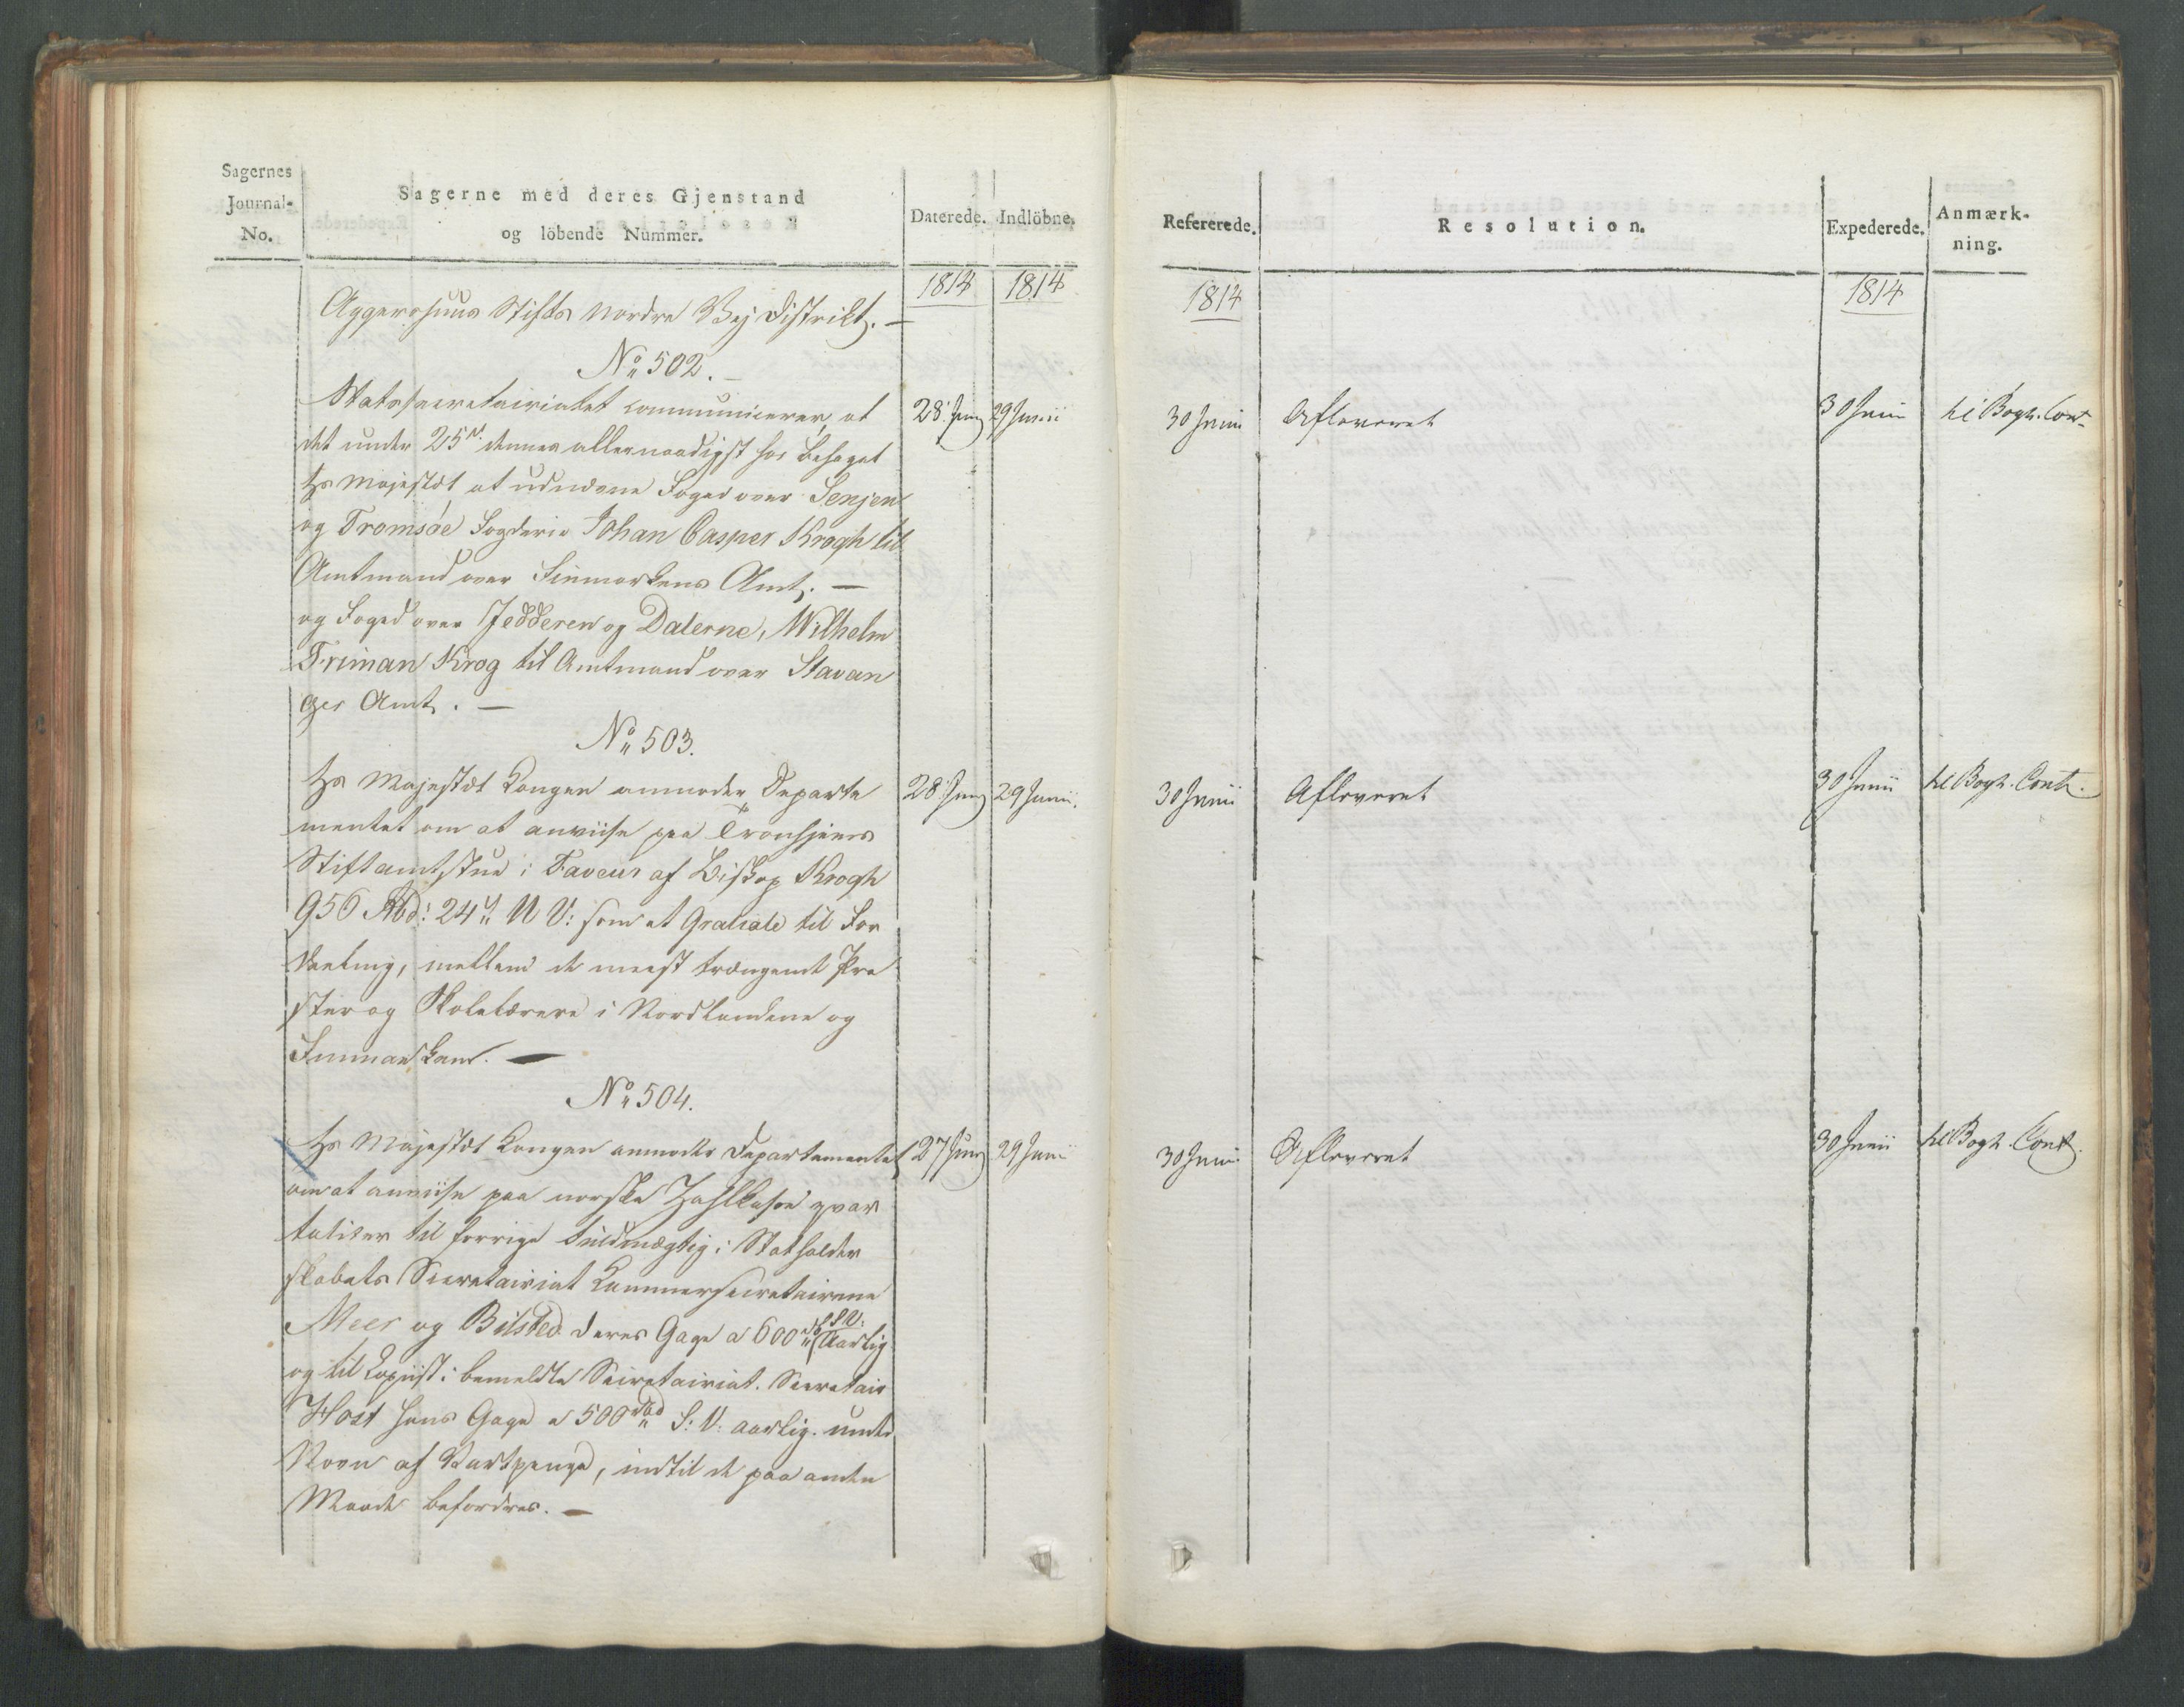 Sagernes
Journal-
No.
Sagerne med deres Gjenstand
og löbende Nummer.
Daterede.
Indlöbne.
1814
1814
Aggershuus Stifts Nordre Vej Distrikt. —
No 502. —
Statssecretairiatet communicerer, at
det under 25de dennes allernaadigst har behaget
Hs Majestæt at udnævne Foged over Senjen
og Tromsöe Fogderie Johan Casper Krogh til
Amtmand over Finmarkens Amt. —
og Foged over Jedderen og Dalerne, Wilhelm
Friman Krog til Amtmand over Stavan
ger Amt. —
28 Juny
29 Junii
No 503.
Hs Majestæt Kongen anmoder Departe
mentet om at anviise paa Tronhjems
Stiftamtstue i Faveur af Biskop Krogh
956 Rbd: 24 s N V: som et Gratiale til For
deeling, mellem de meest trængende Præ
ster og Skolelærere i Nordlandene og
Finmarken. —
28 Juny
29 Junii.
No 504.
Hs Majestæt Kongen anmoder Departementet
om at anviise paa norske Zahlkasse qvar
taliter til forrige Fuldmægtig i Statholder
skabets Secretairiat Kammersecretairerne
Meer og Bilsted deres Gage a 600 rbd S.V. Aarlig
og til Copiist i bemeldte Secretairiat. Secretair
Høst hans Gage a 500 rbd S: V: aarlig. under
Navn af Vartpenge, indtil de paa anden
Maade befordres. —
27 Juny
29 Juni
Refererede.
Resolution.
Expederede.
Anmærk-
ning.
1814
1814
30 Junii
Afleveret
30 Junii
til Bogh. Cont.
30 Junii
Afleveret
30 Junii
til Bogh. Cont.
30 Junii
Afleveret
30 Junii
til Bogh. Cont.